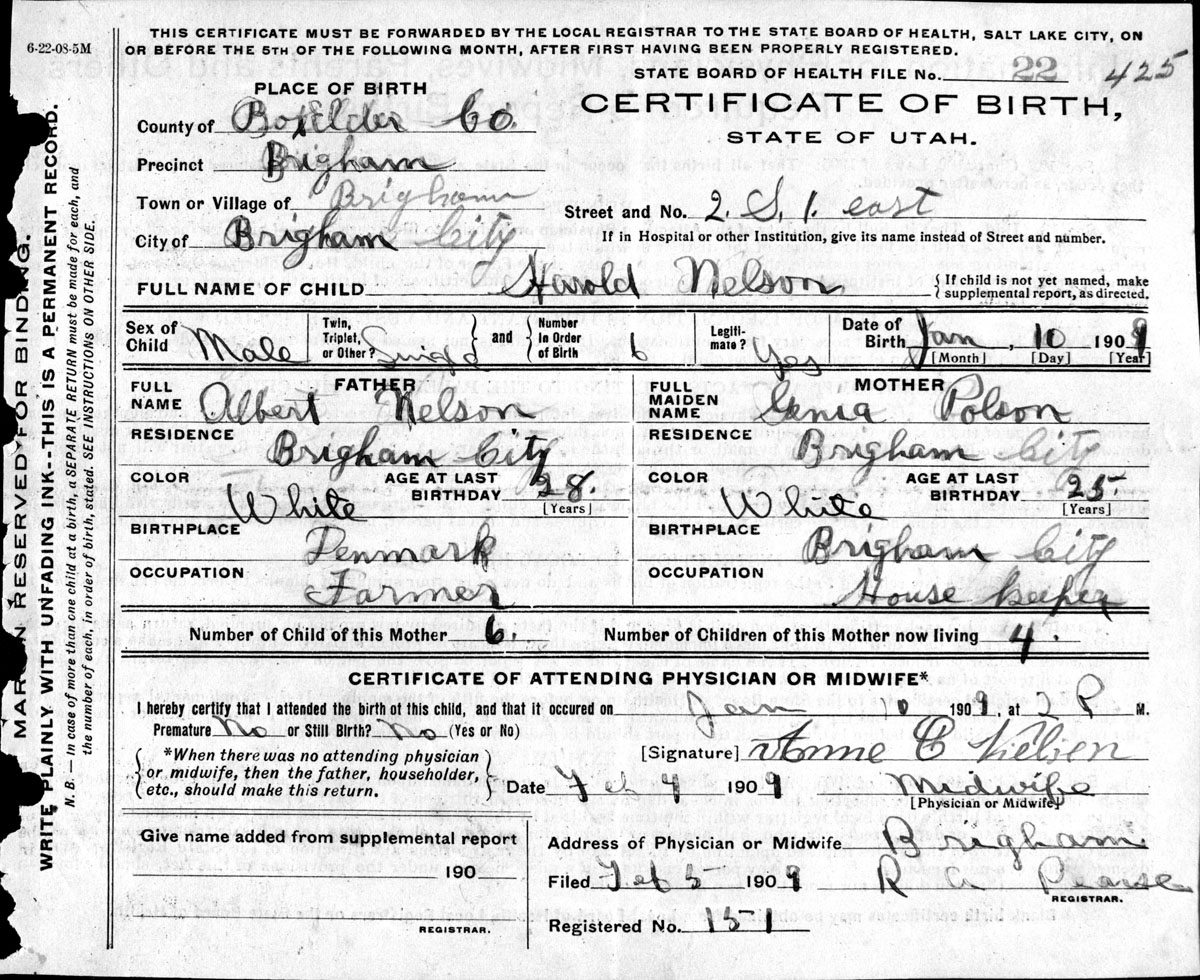 6-22-08-5M
THIS CERTIFICATE MUST BE FORWARDED BY THE LOCAL REGISTRAR TO THE STATE BOARD OF HEALTH, SALT LAKE CITY, ON
OR BEFORE THE 5TH OF THE FOLLOWING MONTH, AFTER FIRST HAVING BEEN PROPERLY REGISTERED.
STATE BOARD OF HEALTH FILE No. 22 425
PLACE OF BIRTH
CERTIFICATE OF BIRTH,
STATE OF UTAH.
County of Boxelder Co.
Precinct Brigham
Town or Village of Brigham
Street and No. 2. S. 1. east
City of Brigham City
If in Hospital or other Institution, give its name instead of Street and number.
FULL NAME OF CHILD Harold Nelson
{ If child is not yet named, make
supplemental report, as directed.
Sex of Child Male
Twin, Triplet, or Other? } and { Number in Order of Birth 6
Legiti-mate? Yes
Date of Birth Jan 10 1909
[Month] [Day] [Year]
FATHER
FULL NAME Albert Nelson
MOTHER
FULL MAIDEN NAME Polson
RESIDENCE Brigham City
RESIDENCE Brigham City
COLOR White AGE AT LAST BIRTHDAY 28. [Years]
COLOR White AGE AT LAST BIRTHDAY 25 [Years]
BIRTHPLACE Denmark
BIRTHPLACE Brigham City
OCCUPATION Farmer
OCCUPATION House keeper
Number of Child of this Mother 6. Number of Children of this Mother now living 4.
CERTIFICATE OF ATTENDING PHYSICIAN OR MIDWIFE*
I hereby certify that I attended the birth of this child, and that it occured on Jan 10 1909, at 2 P M.
Premature No or Still Birth? No (Yes or No)
[Signature] Anne C Nielsen
{ *When there was no attending physician
or midwife, then the father, householder,
etc., should make this return. }
Date Feb 4 1909 Midwife
[Physician or Midwife]
Give name added from supplemental report
190
REGISTRAR.
Address of Physician or Midwife Brigham
Filed Feb 5 1909 R A Pearse
REGISTRAR.
Registered No. 151
MARGIN RESERVED FOR BINDING.
WRITE PLAINLY WITH UNFADING INK--THIS IS A PERMANENT RECORD.
N. B.—In case of more than one child at a birth, a SEPARATE RETURN must be made for each, and
the number of each, in order of birth, stated. SEE INSTRUCTIONS ON OTHER SIDE.